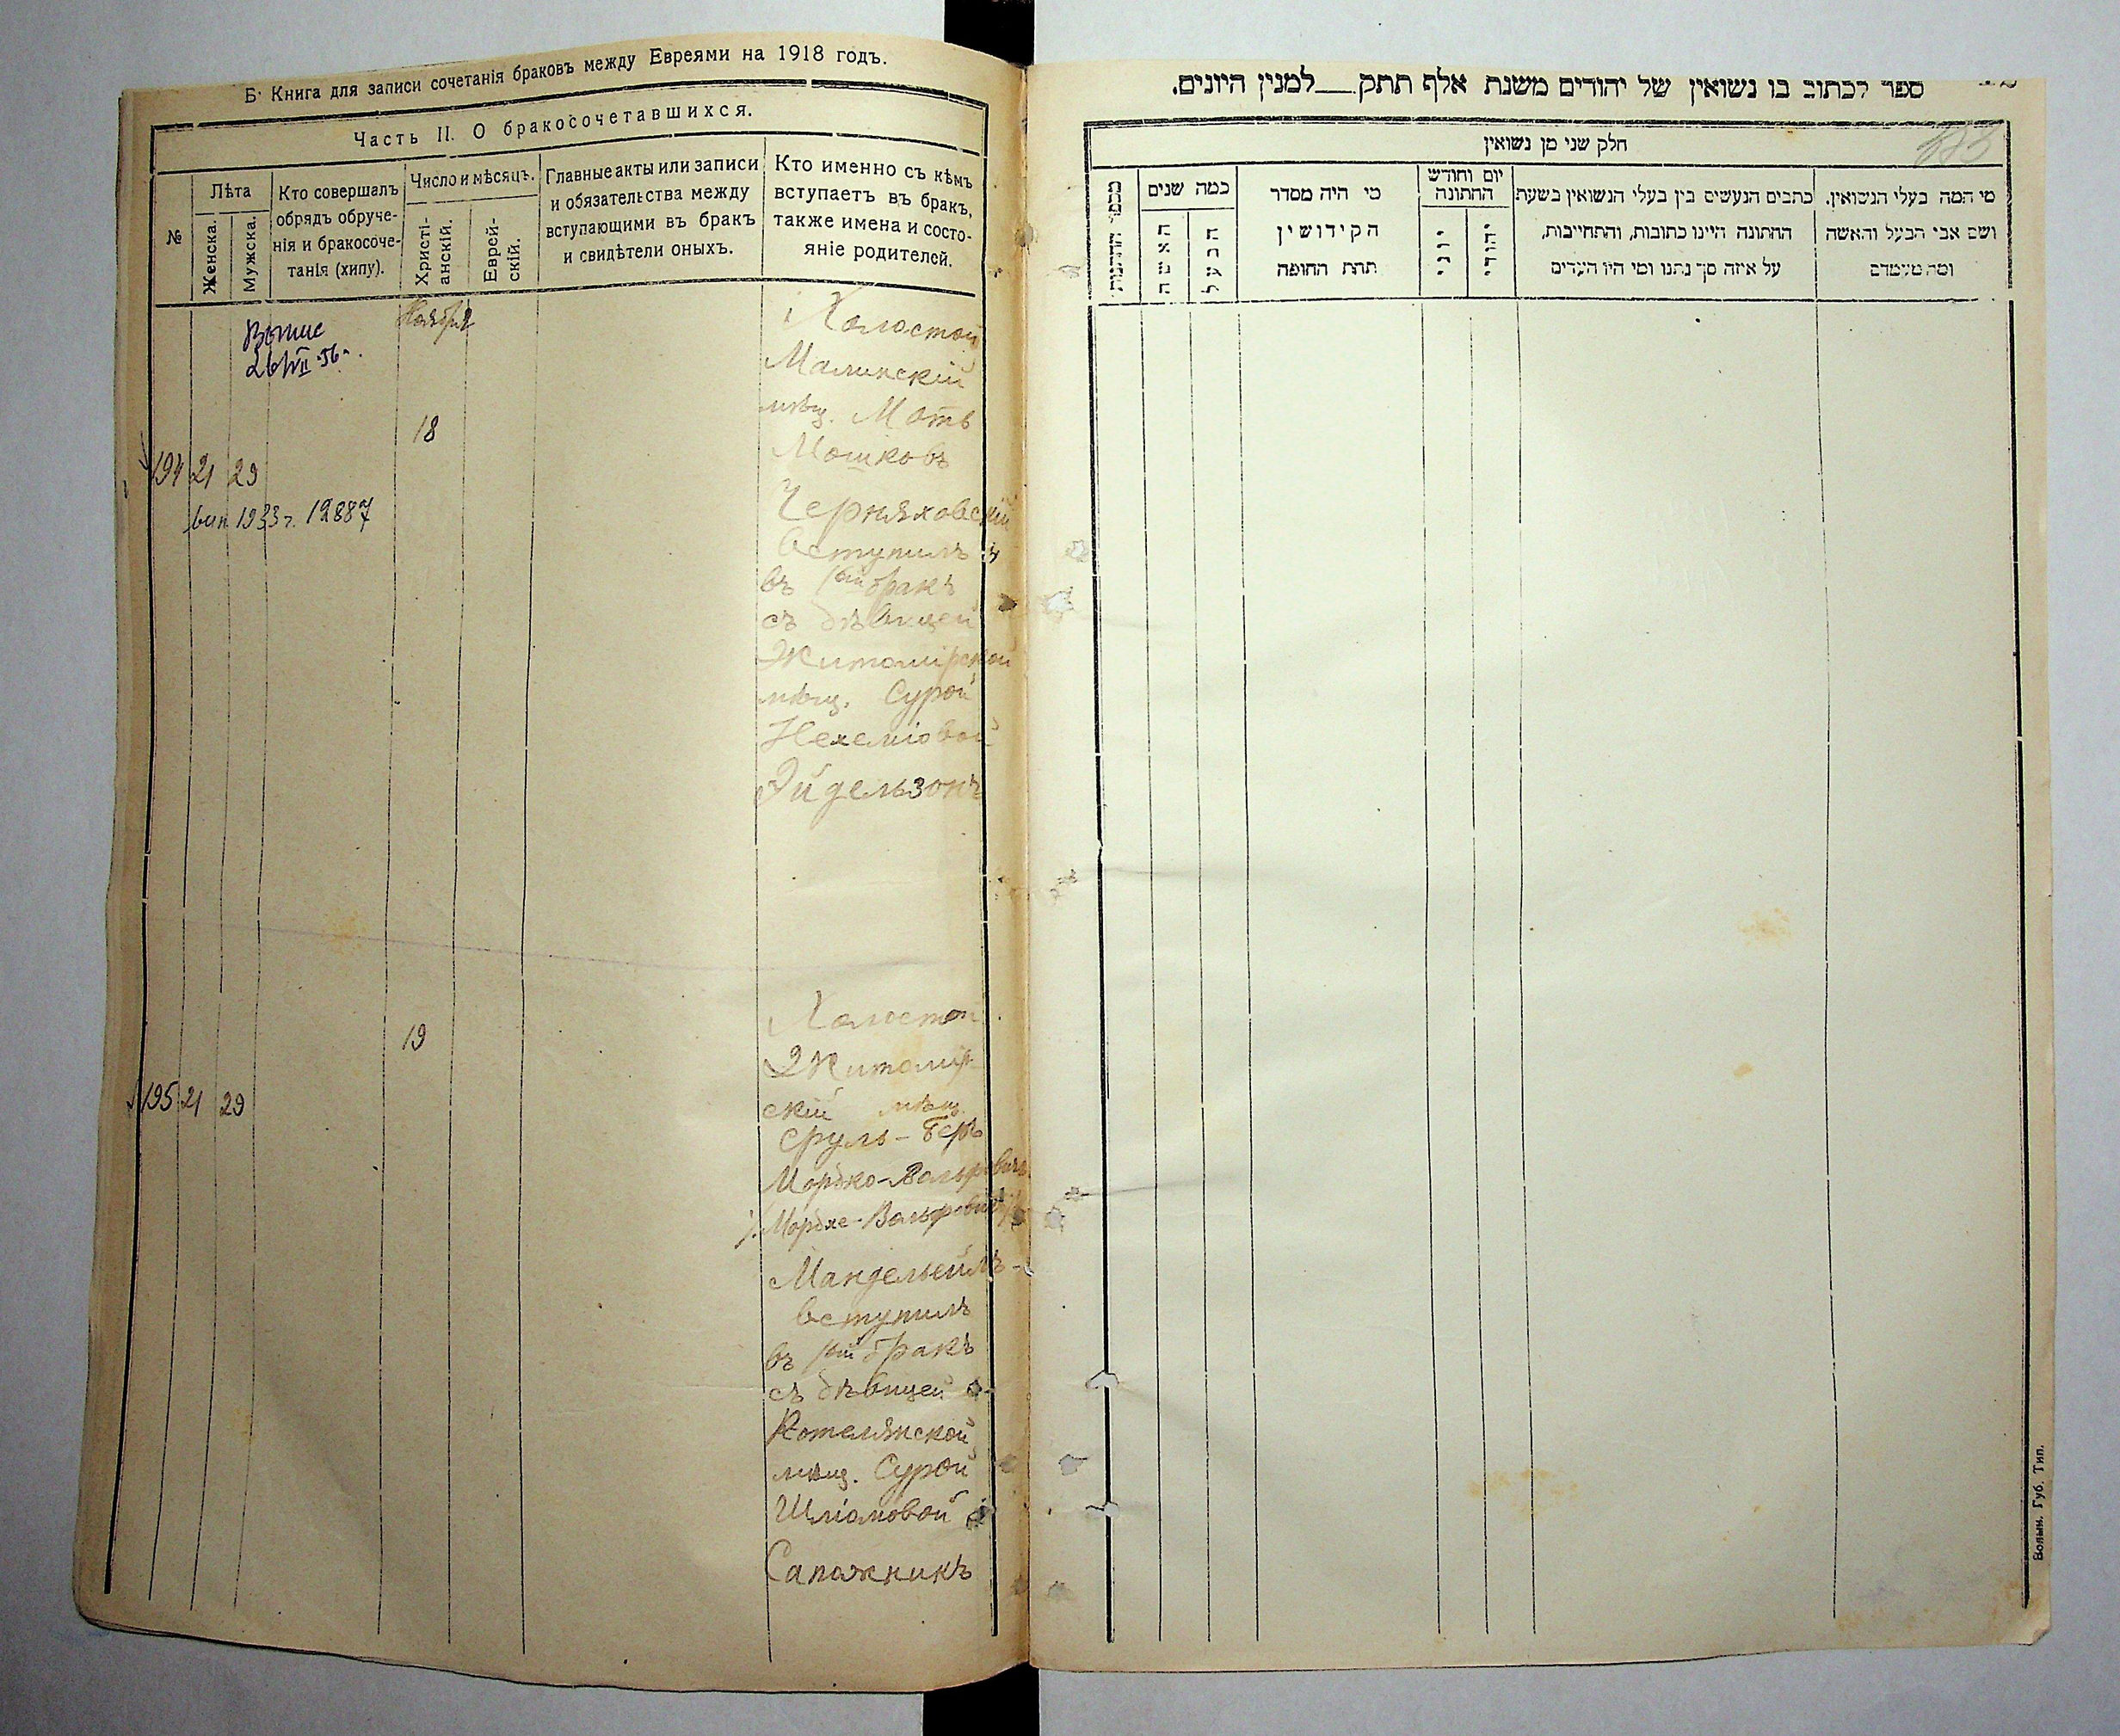 Б. Книга для записи сочетанія браковъ между Евреями на 1918 годъ.
Часть II. О бракосочетавшихся.
№
Лѣта
Женска.
Мужска.
Кто совершалъ
обрядъ обруче-
нія и бракосоче-
танія (хипу).
Число и мѣсяцъ.
Христі-
анскій.
Еврей-
скій.
Главные акты или записи
и обязательства между
вступающими въ бракъ
и свидѣтели оныхъ.
Кто именно съ кѣмъ
вступаетъ въ бракъ,
также имена и состо-
яніе родителей.
Ноября
194 21 29
18
вип. 1933 г. 19887
Холостой
Малинскій
мѣщ. Моть
Мошковъ
Черняховскій
вступилъ
въ 1ый бракъ
съ дѣвицей
Житомірской
мѣщ. Сурой
Нехеміовой
Эйдельзонъ
195 21 29
19
Холостой
Житомір-
скій мѣщ.
Сруль-Беръ
Мордко-Вольфовичъ
Мордхе-Вольфовичъ
Мандельеймъ
вступилъ
въ 1ый бракъ
съ дѣвицей
Котелянской
мѣщ. Сурой
Шліомовой
Сапожникъ
ספר לכתוב בו נשואין של יהודים משנת אלף תתק__למנין היונים.
חלק שני מן נשואין
מי המה בעלי הנשואין.
ושם אבי הבעל והאשה
ומה מעמדם
כתבים הנעשים בין בעלי הנשואין בשעת
החתונה היינו כתובות, והתחייבות,
על איזה סך נתנו ומי היו העדים
יום וחודש
החתונה
יהודי
יוני
מי היה מסדר
הקידושין
תחת החופה
כמה שנים
הבעל
האשה
Волын. Губ. Тип.